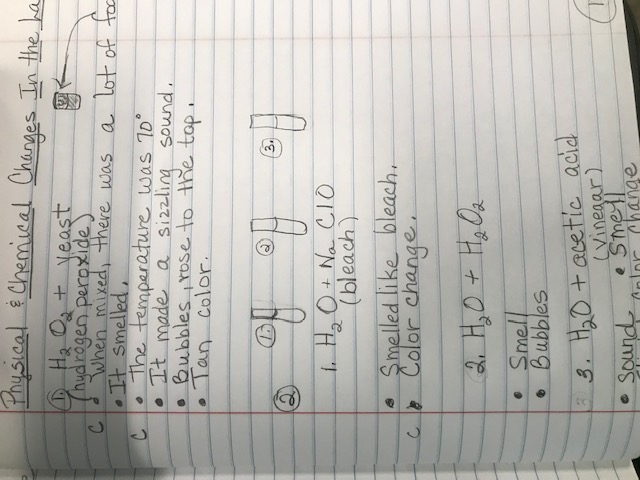 Physical & Chemical Changes In the La
① H2O2 + Yeast
(hydrogen peroxide)
C • When mixed, there was a lot of foa
• It smelled.
C • The temperature was 70°
• It made a sizzling sound.
• Bubbles, rose to the top.
• Tan color.
② ① ② ③
1. H2O + NaClO
(bleach)
• Smelled like bleach.
C • Color change.
2. H2O + H2O2
• Smell
• Bubbles
3. H2O + acetic acid
(vinegar)
• Smell
• Sound • Color Change